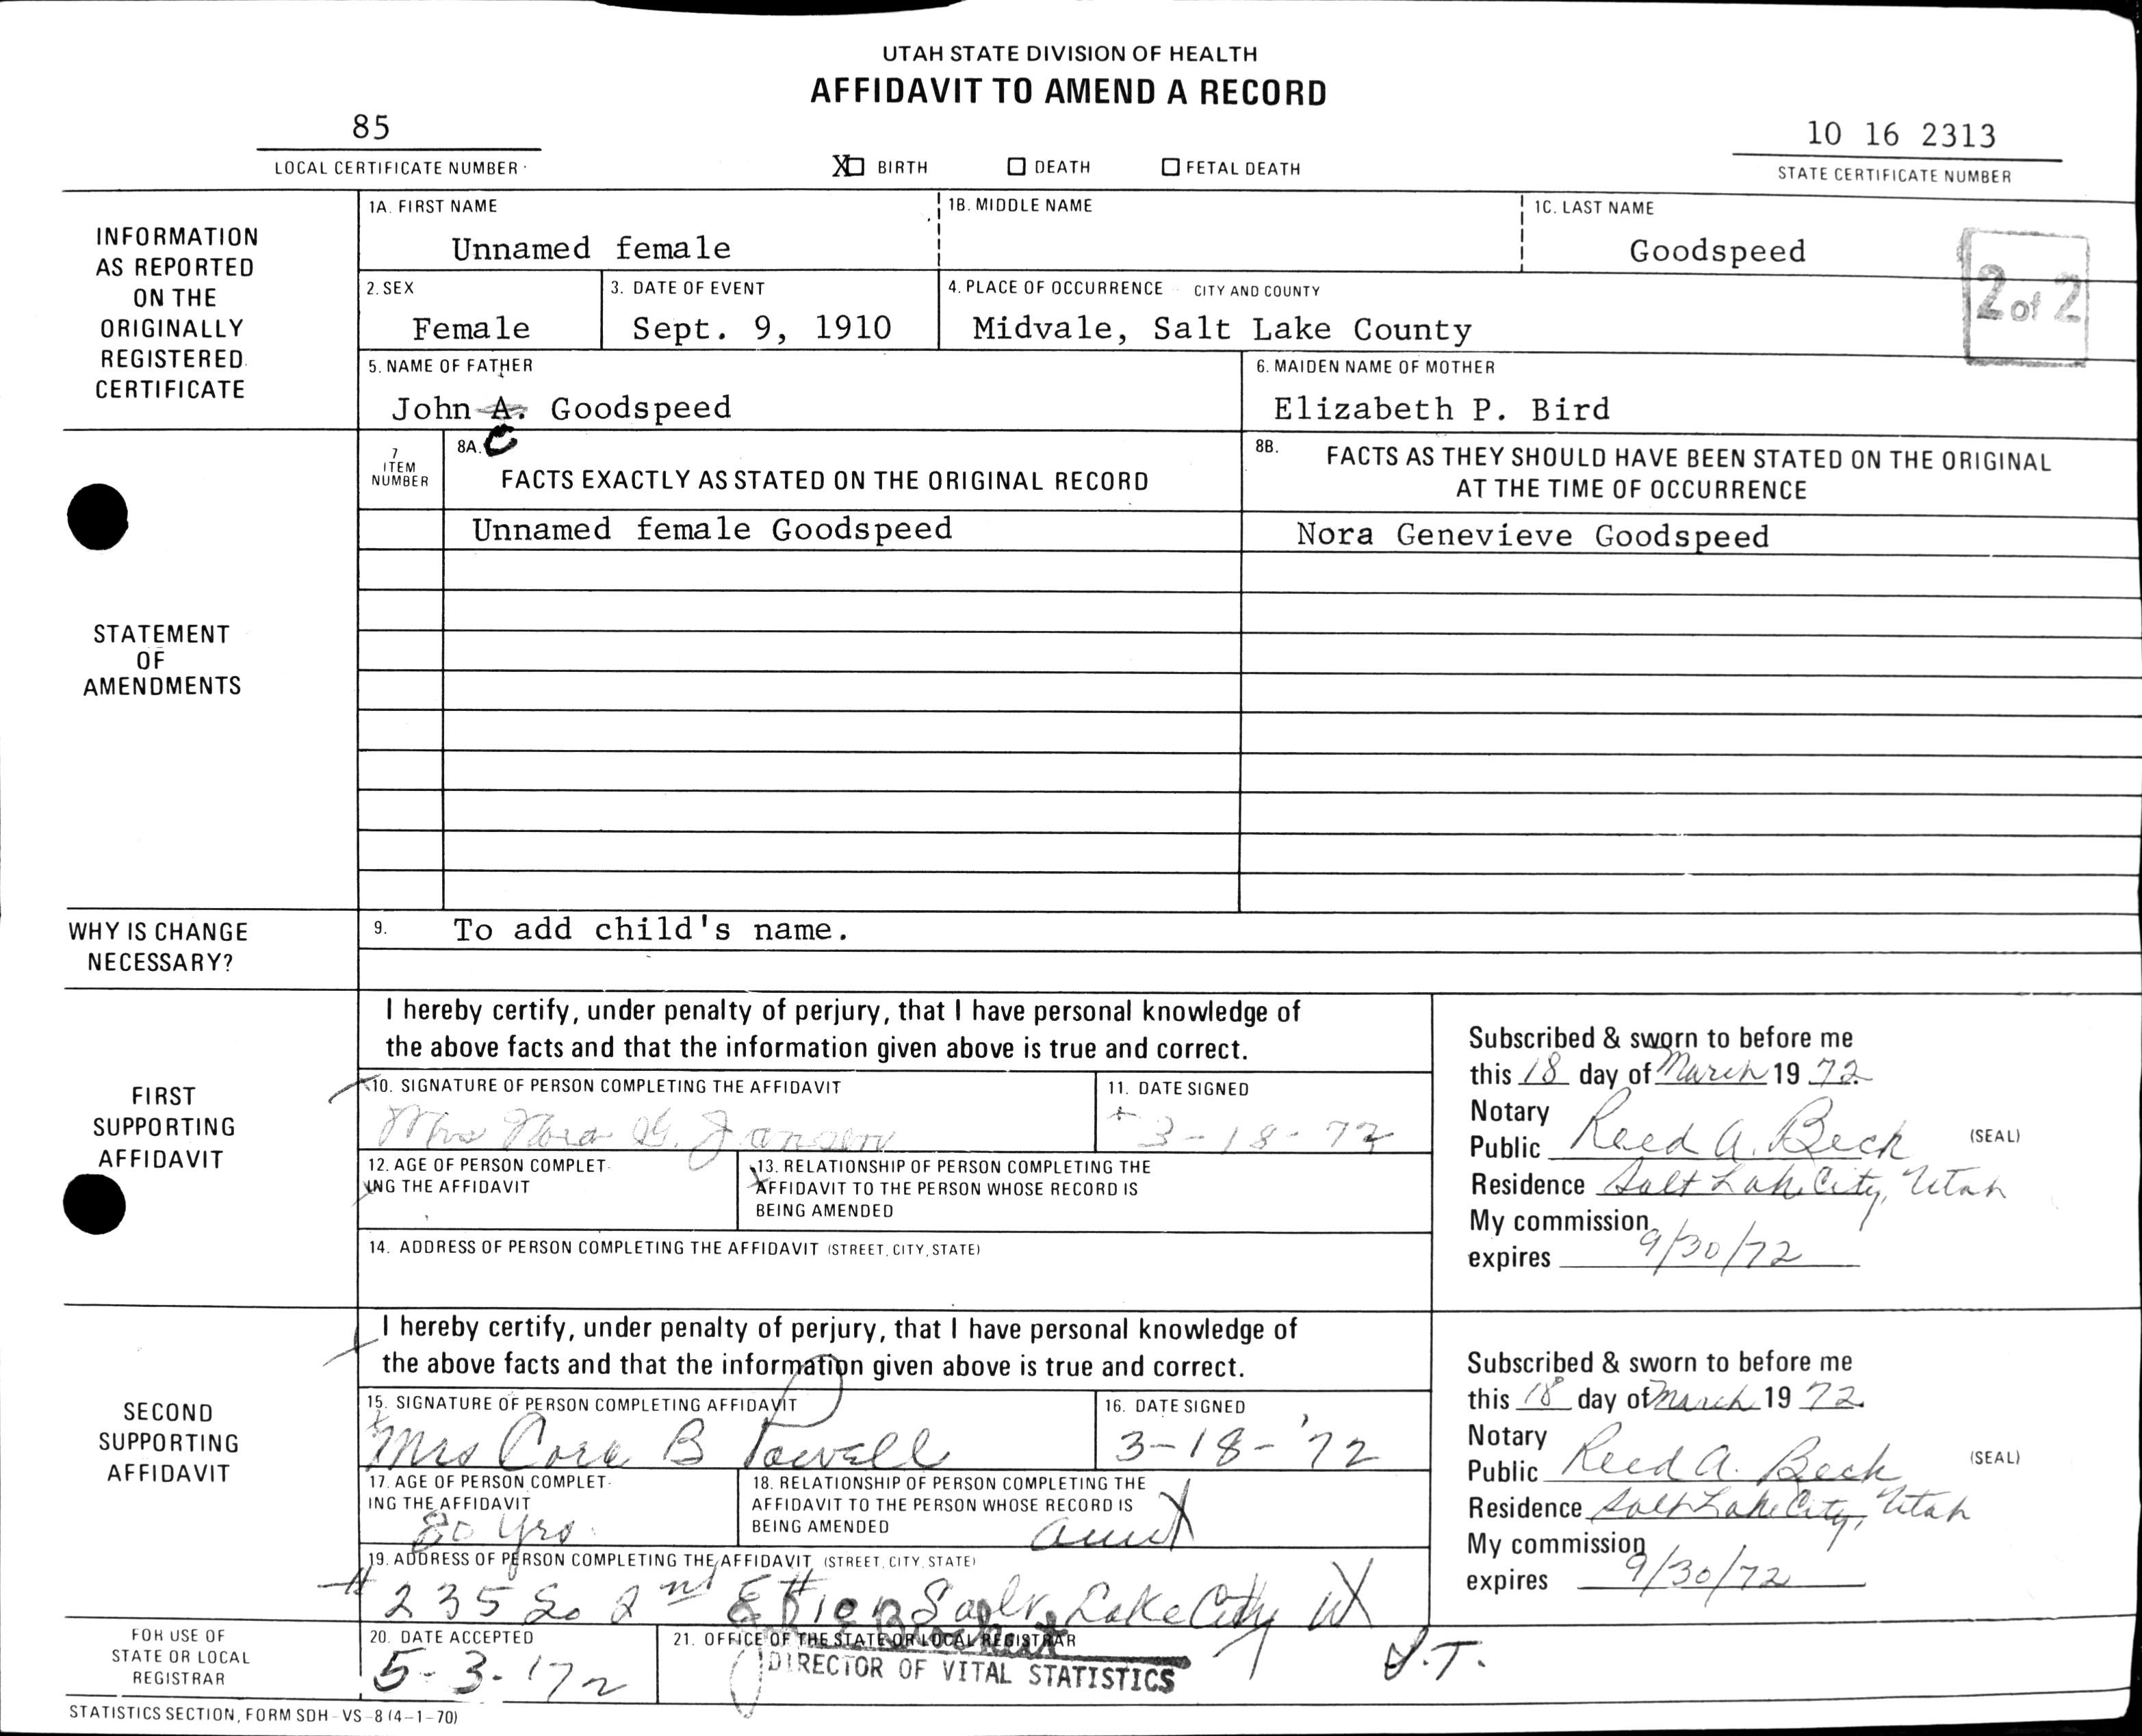 UTAH STATE DIVISION OF HEALTH
AFFIDAVIT TO AMEND A RECORD
85
LOCAL CERTIFICATE NUMBER
X BIRTH DEATH FETAL DEATH
10 16 2313
STATE CERTIFICATE NUMBER
INFORMATION AS REPORTED ON THE ORIGINALLY REGISTERED CERTIFICATE
1A. FIRST NAME 1B. MIDDLE NAME 1C. LAST NAME
Unnamed female Goodspeed
2 of 2
2. SEX 3. DATE OF EVENT 4. PLACE OF OCCURRENCE CITY AND COUNTY
Female Sept. 9, 1910 Midvale, Salt Lake County
5. NAME OF FATHER 6. MAIDEN NAME OF MOTHER
John A. Goodspeed Elizabeth P. Bird
C
STATEMENT OF AMENDMENTS
7 ITEM NUMBER
8A. FACTS EXACTLY AS STATED ON THE ORIGINAL RECORD
8B. FACTS AS THEY SHOULD HAVE BEEN STATED ON THE ORIGINAL
AT THE TIME OF OCCURRENCE
Unnamed female Goodspeed Nora Genevieve Goodspeed
WHY IS CHANGE NECESSARY?
9. To add child's name.
FIRST SUPPORTING AFFIDAVIT
I hereby certify, under penalty of perjury, that I have personal knowledge of
the above facts and that the information given above is true and correct.
10. SIGNATURE OF PERSON COMPLETING THE AFFIDAVIT 11. DATE SIGNED
Mrs Nora G. Jansen 3-18-72
12. AGE OF PERSON COMPLETING THE AFFIDAVIT
13. RELATIONSHIP OF PERSON COMPLETING THE
AFFIDAVIT TO THE PERSON WHOSE RECORD IS
BEING AMENDED
14. ADDRESS OF PERSON COMPLETING THE AFFIDAVIT (STREET, CITY, STATE)
Subscribed & sworn to before me
this 18 day of March 19 72
Notary
Public Reed A. Beck (SEAL)
Residence Salt Lake City, Utah
My commission
expires 9/30/72
SECOND SUPPORTING AFFIDAVIT
I hereby certify, under penalty of perjury, that I have personal knowledge of
the above facts and that the information given above is true and correct.
15. SIGNATURE OF PERSON COMPLETING AFFIDAVIT 16. DATE SIGNED
Mrs Cora B Powell 3-18-'72
17. AGE OF PERSON COMPLETING THE AFFIDAVIT
80 yrs.
18. RELATIONSHIP OF PERSON COMPLETING THE
AFFIDAVIT TO THE PERSON WHOSE RECORD IS
BEING AMENDED
aunt
19. ADDRESS OF PERSON COMPLETING THE AFFIDAVIT (STREET, CITY, STATE)
# 235 So 2nd E Salt Lake City Ut
Subscribed & sworn to before me
this 18 day of March 19 72
Notary
Public Reed A. Beck (SEAL)
Residence Salt Lake City, Utah
My commission
expires 9/30/72
FOR USE OF STATE OR LOCAL REGISTRAR
20. DATE ACCEPTED
5-3-'72
21. OFFICE OF THE STATE OR LOCAL REGISTRAR
DIRECTOR OF VITAL STATISTICS
STATISTICS SECTION, FORM SDH-VS-8 (4-1-70)